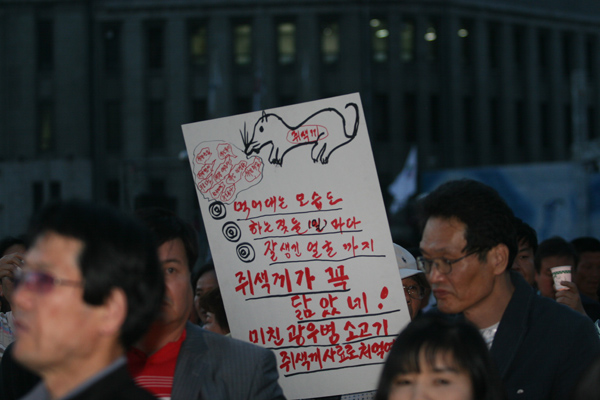 쥐색끼
먹어대는 모습도
하는 짓들(일)마다
잘생긴 얼굴까지
쥐색끼가 꼭
닮았네!
미친 광우병 소고기
쥐색끼 사료로 처먹여